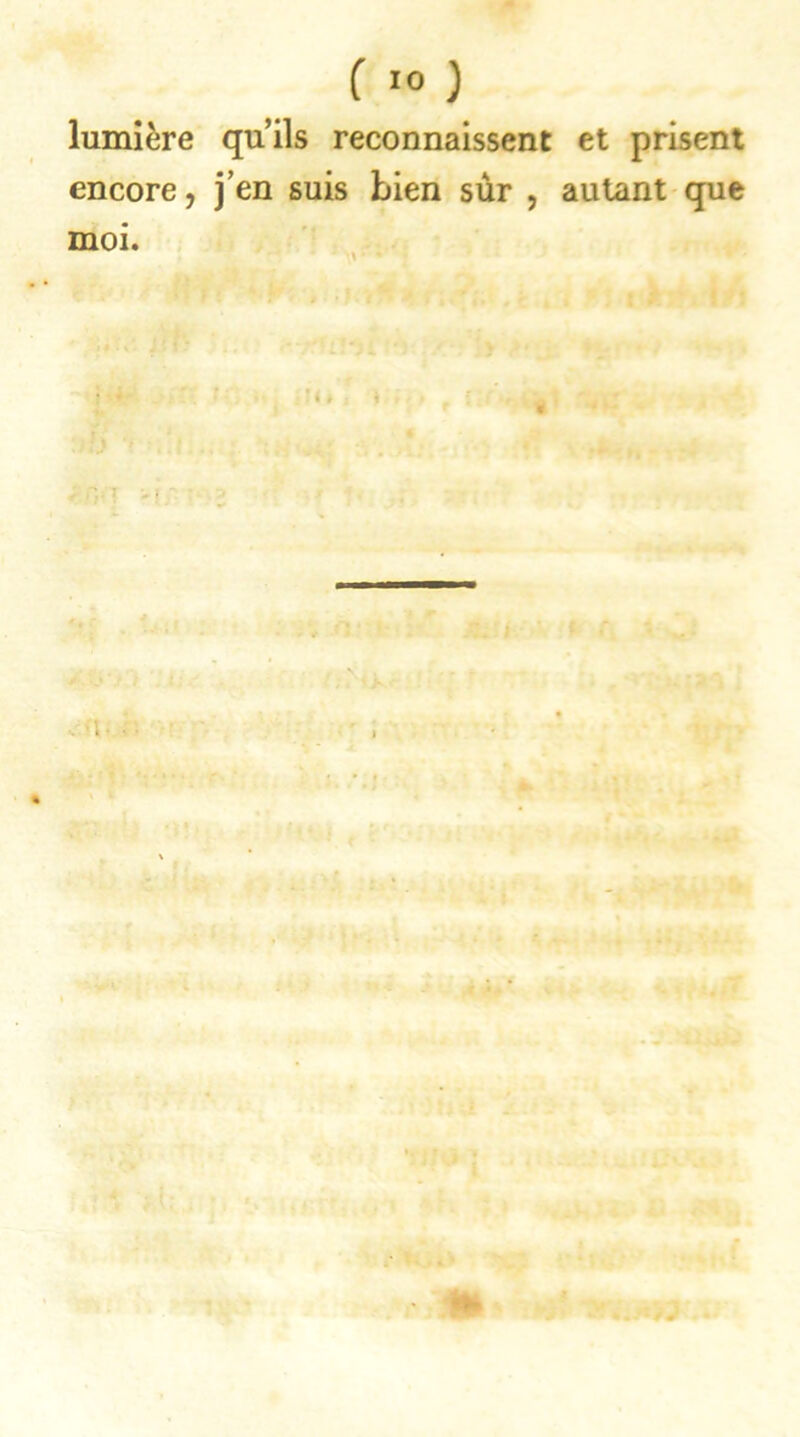 ( 10 )
lumière qu'ils reconnaissent et prisent
encore, j'en suis bien sûr , autant que
moi.